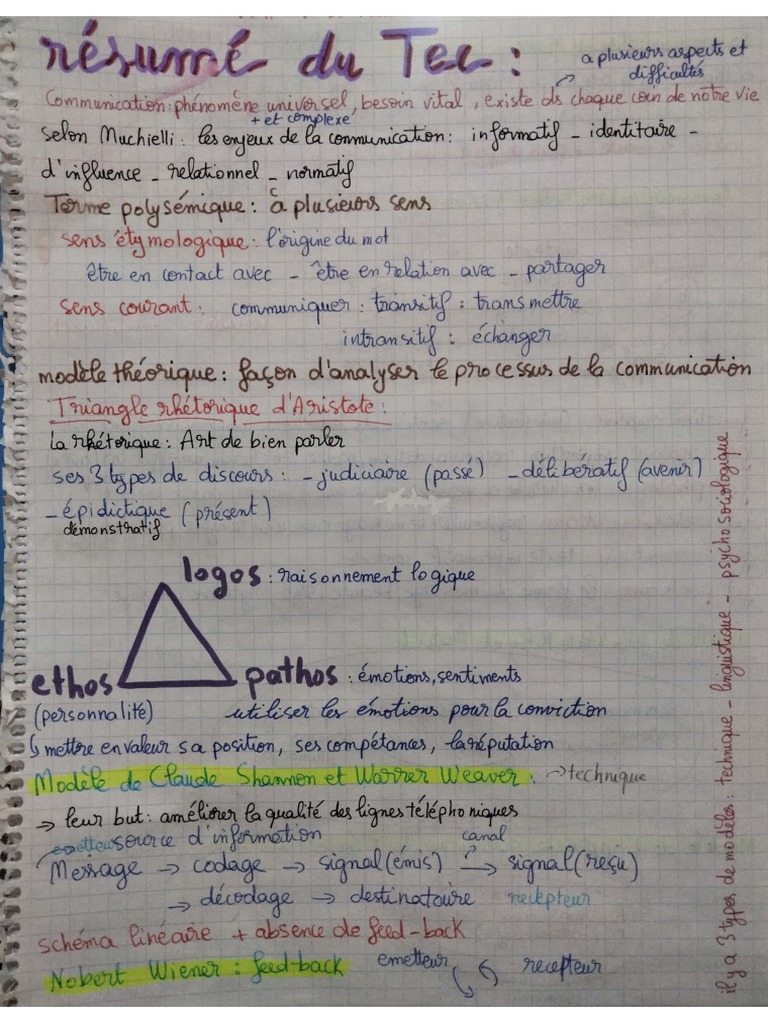 résumé du Tec :
a plusieurs aspects et
difficultés
Communication : phénomène universel, besoin vital, existe ds chaque coin de notre vie
+ et complexe
selon Muchielli : les enjeux de la communication : informatif _ identitaire _
d'influence _ relationnel _ normatif
Terme polysémique : à plusieurs sens
sens étymologique : l'origine du mot
être en contact avec _ être en relation avec _ partager
sens courant : communiquer : transitif : transmettre
intransitif : échanger
modèle théorique : façon d'analyser le processus de la communication
Triangle rhétorique d'Aristote :
la rhétorique : Art de bien parler
ses 3 types de discours : _ judiciaire (passé) _ délibératif (avenir)
_ épidictique (présent)
démonstratif
logos : raisonnement logique
ethos
pathos : émotions, sentiments
(personnalité)
utiliser les émotions pour la conviction
↳ mettre en valeur sa position, ses compétances, la réputation
Modèle de Claude Shannon et Warrer Weaver : → technique
→ leur but : améliorer la qualité des lignes téléphoniques
emetteur source d'information
canal
Message → codage → signal (émis) → signal (reçu)
→ décodage → destinatoire recepteur
schéma linéaire + absence de feed-back
Nobert Wiener : feed-back emetteur recepteur
il y a 3 types de modèles : technique _ linguistique _ psycho sociologique